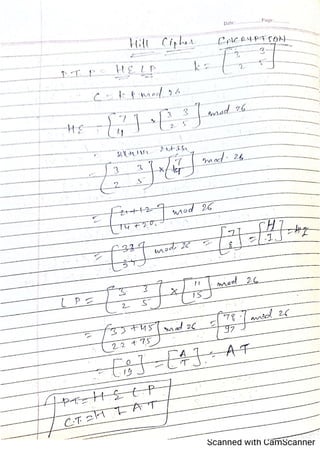 Date: Page
Hill Cipher ENCRYPTION
P.T. P = HELP k = [3 3
2 5]
C = k P mod 26
HE = [7
4] × [3 3
2 5] mod 26
= [3 3
2 5] × [7
4] mod 26
= [21+12
14+20] mod 26
= [33
34] mod 26 = [7
8] = [H
I] = HI
LP = [3 3
2 5] × [11
15] mod 26
= [33+45
22+75] mod 26 = [78
97] mod 26
= [0
19] = [A
T] = AT
PT = HELP
CT = HIAT
Scanned with CamScanner